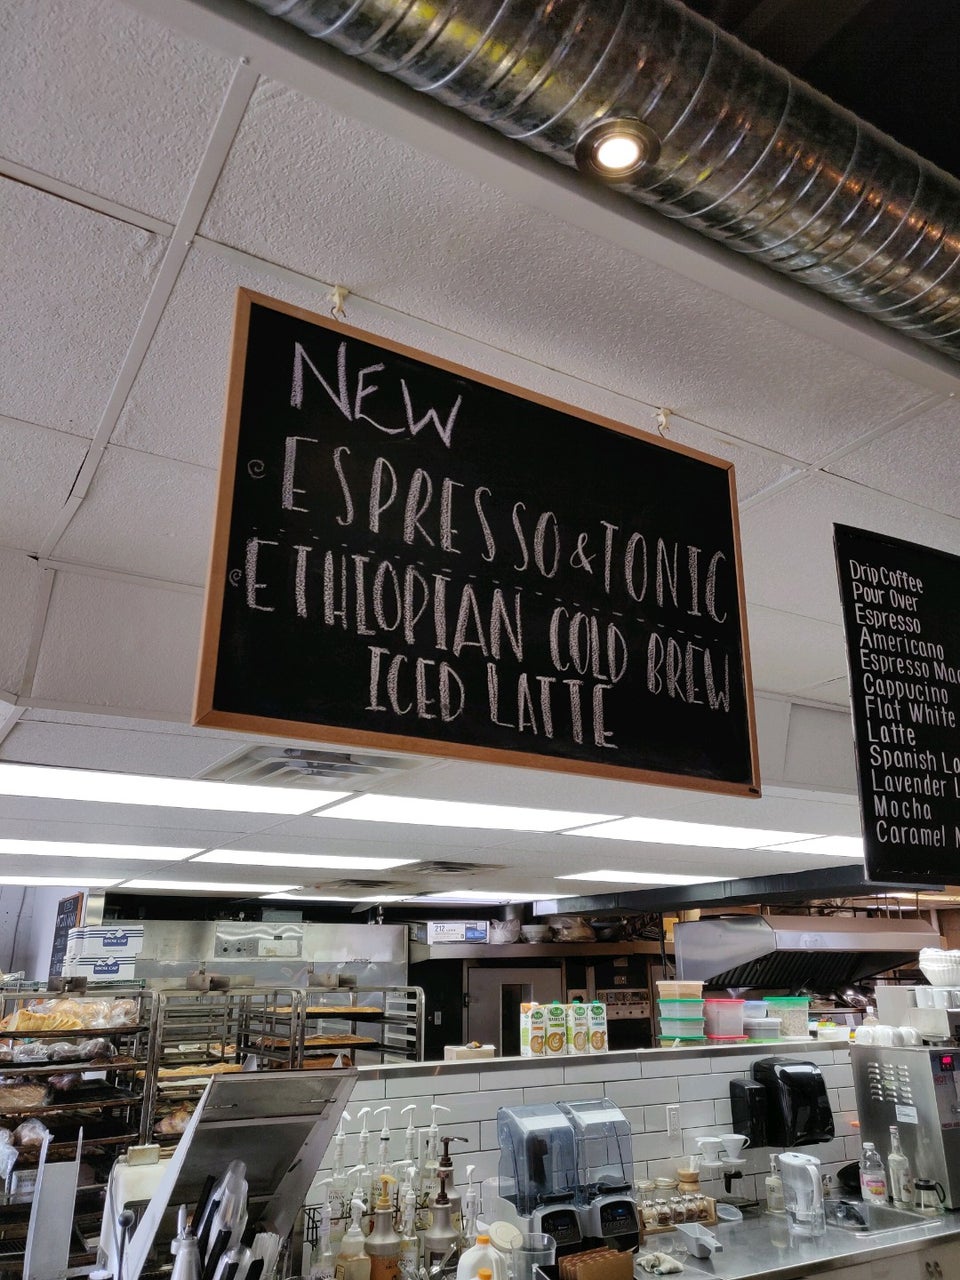 NEW
ESPRESSO & TONIC
ETHIOPIAN COLD BREW
ICED LATTE
Drip Coffee
Pour Over
Espresso
Americano
Espresso
Cappucino
Flat White
Latte
Spanish
Lavender
Mocha
Caramel
212